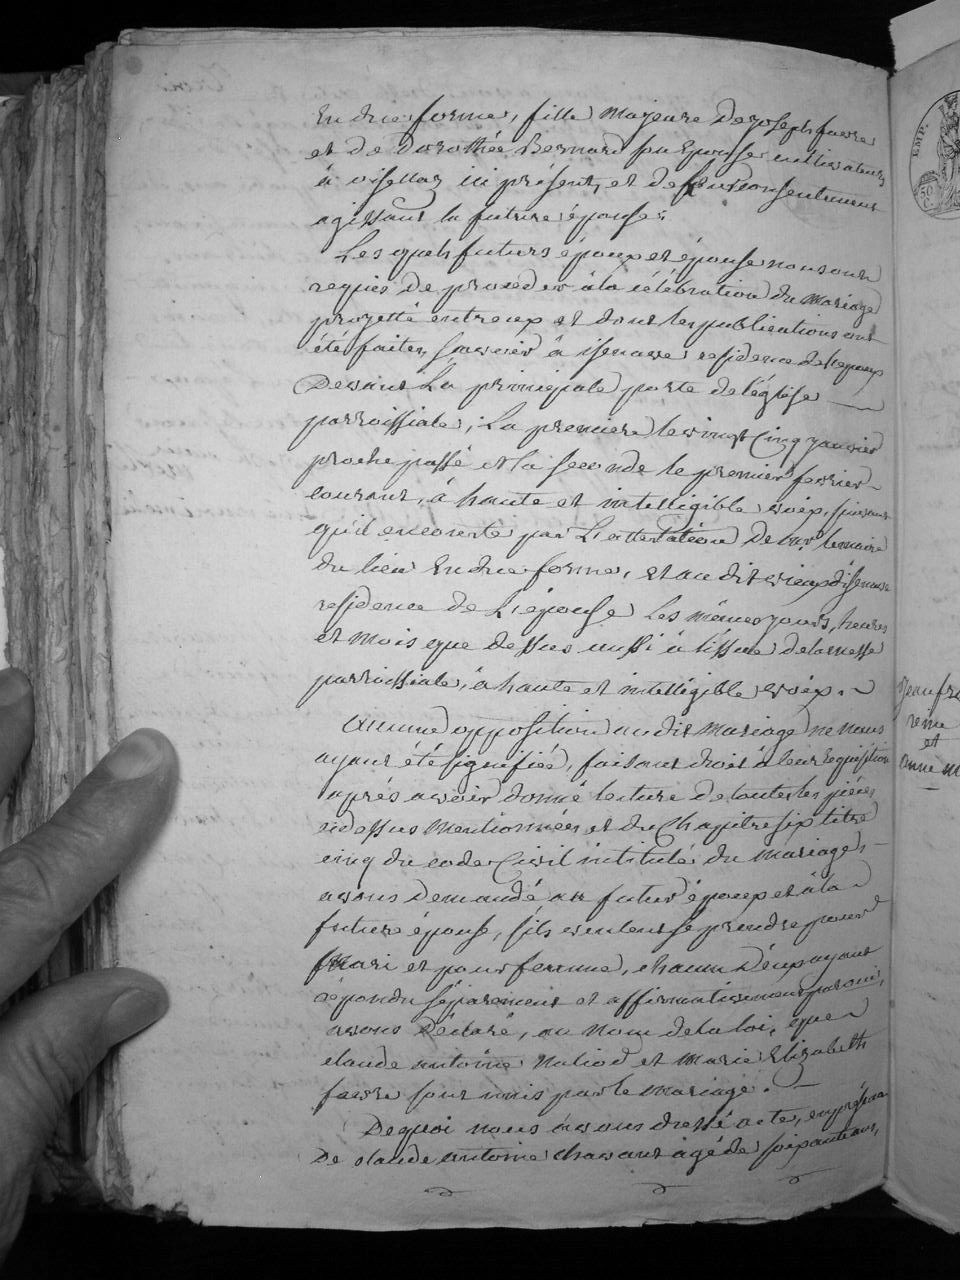 En due forme, fille majeure de joseph favre
et de Dorothée Bernard son Epouse cultivateurs
à ici présent, et de leur consentement
agissant la future épouse;
Les quels futurs époux et épouse nous ont
requis de procéder à la célébration du mariage
projetté entre eux et dont les publications ont
été faites, savoir à isenave residence de l'epoux
Devant La principale porte de l'église
parroissiale, La premiere le vingt Cinq janvier
proche passé et la seconde le premier fevrier
courant, à haute et intelligible voix, suivant
qu'il en conste par L'attestation de mr le maire
du lieu En due forme, et au dit
residence de L'épouse Les mêmes jours, heures
et mois que dessus aussi à lissue de la messe
parroissiale, à haute et intelligible voix.
Aucune opposition au dit mariage ne nous
ayant été signifiée, faisant droit à leur requisition
après avoir donné lecture de toutes les pièces
ci dessus mentionnées et du Chapitre six titre
cinq du code Civil intitulé du mariage,
avons demandé au futur époux et à la
future épouse, s'ils veulent se prendre pour
mari et pour femme, chacun d'eux ayant
répondu séparement et affirmativement
avons Déclaré, au nom de la loi, que
claude antoine et marie Elizabeth
favre sont unis par le mariage.
De quoi nous avons dressé acte, en présence
De claude antoine chavant agé de soixante ans,
EMP.
50
C.
Jean fr
et
anne m